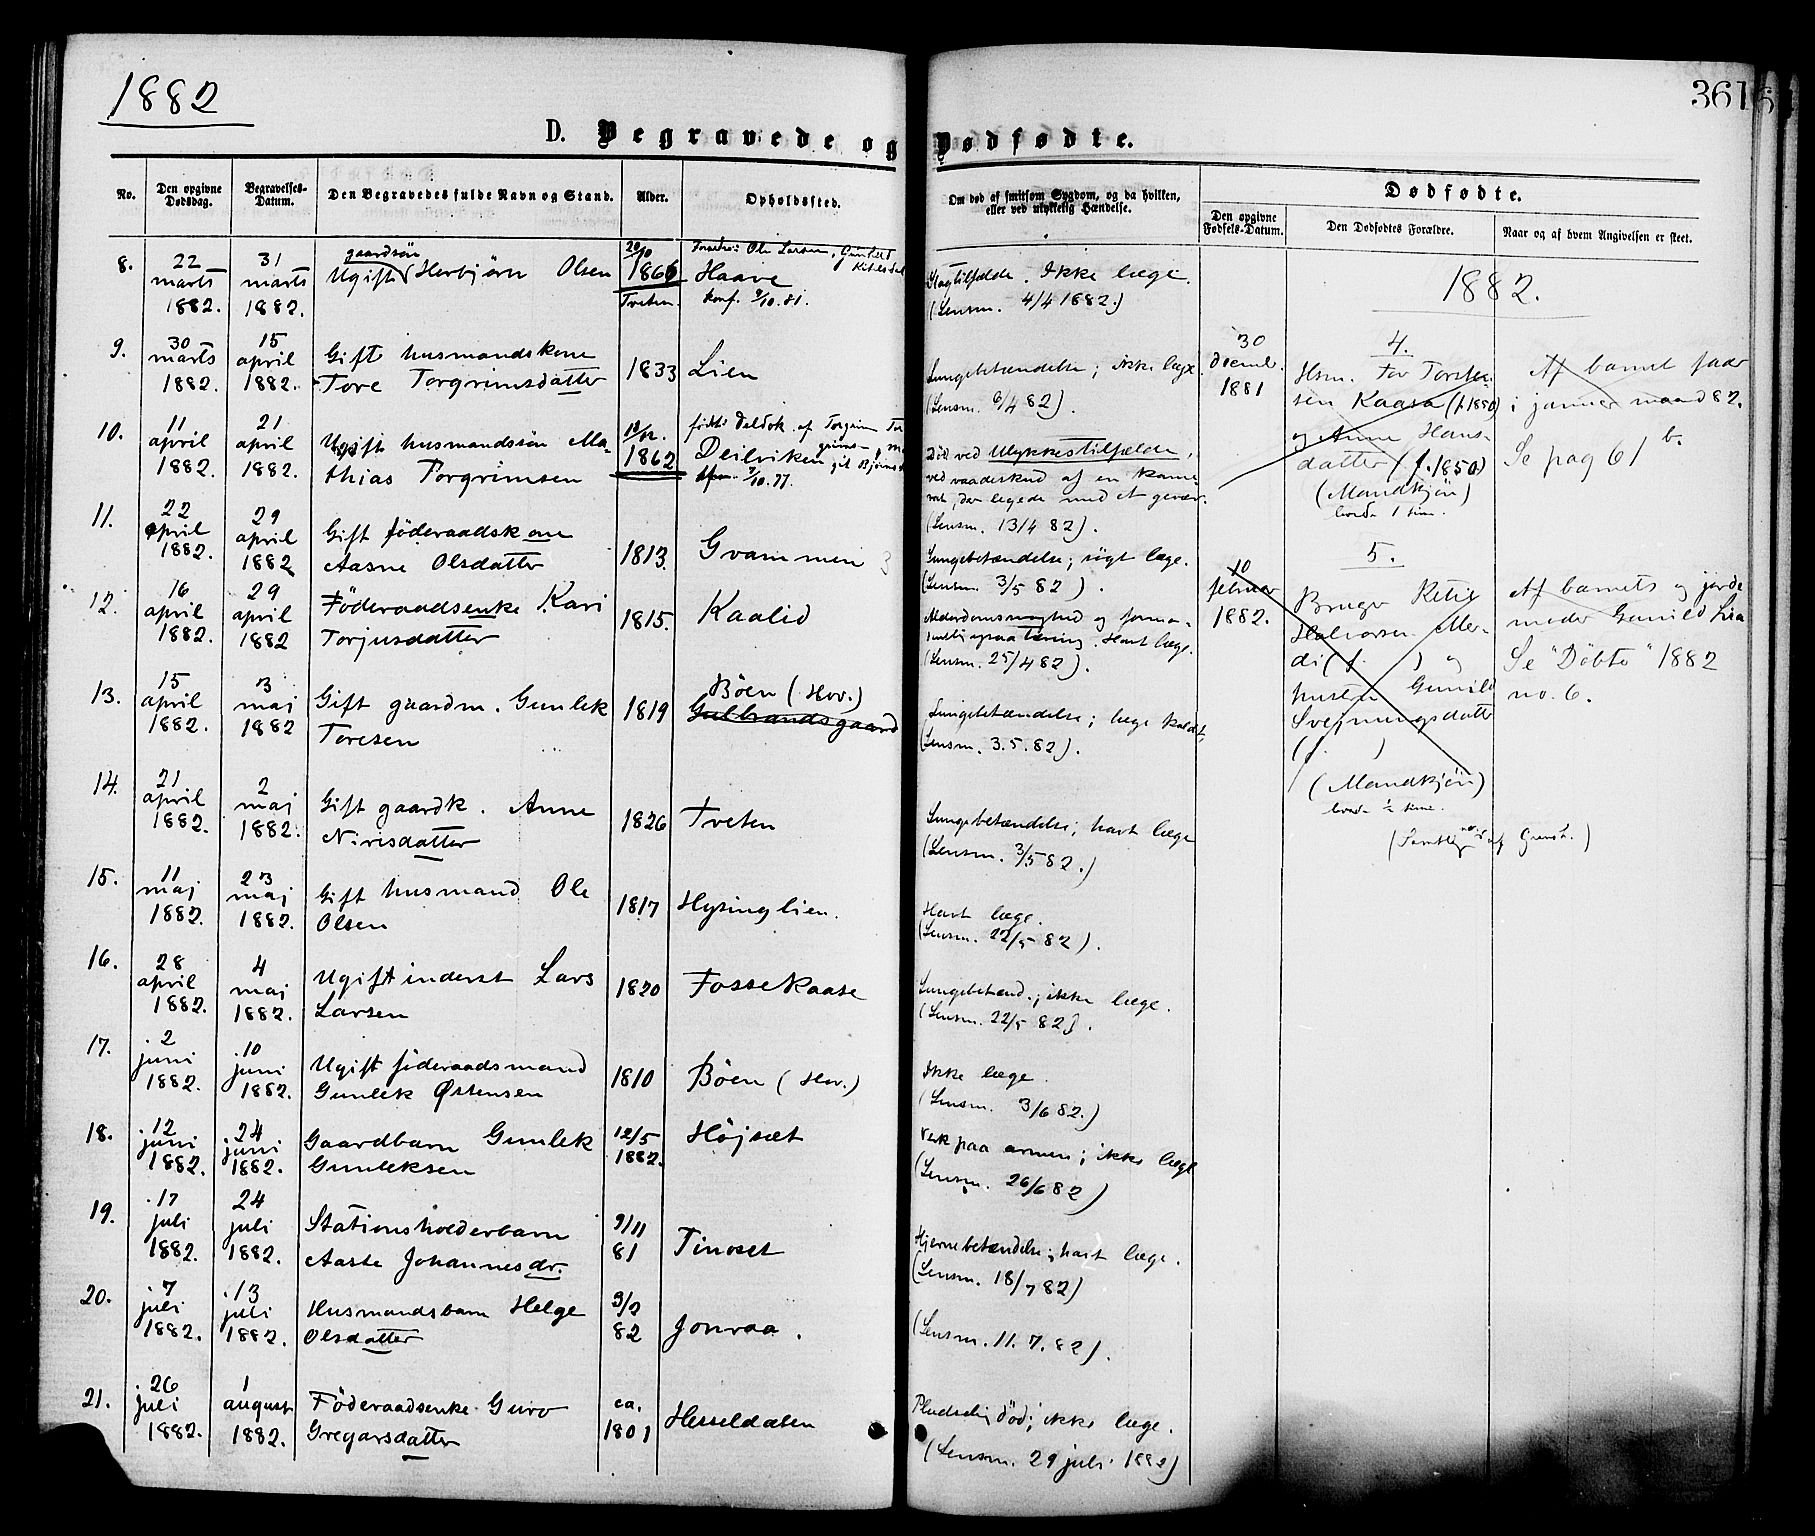 1882
361
D. Begravede og Dødfødte.
No.
Den opgivne Dødsdag.
Begravelses-Datum.
Den Begravedes fulde Navn og Stand.
Alder.
Opholdssted.
Om død af smitsom Sygdom, og da hvilken, eller ved ulykkelig Hændelse.
Dødfødte.
Den opgivne Fødsels-Datum.
Den Dødfødtes Forældre.
Naar og af hvem Angivelsen er skeet.
8.
22 marts 1882.
31 marts 1882.
gaardsön
Ugift Herbjörn Olsen
20/10 1866
Tveten.
Ole Larsen, Gunhild
Haave
konf. 9/10.81.
Slagtilfælde. Ikke læge.
(Lensm. 4/4 1882.)
9.
30 marts 1882.
15 april 1882.
Gift husmandskone
Tore Torgrimsdatter
1833
Lien
Lungebetændelse; ikke læge.
(Lensm. 6/4 82).
10.
11 april 1882.
21 april 1882.
Ugift husmandssön Ma-
thias Torgrimsen
1862
Deilviken
7/10.77.
Död ved Ulykkestilfælde,
ved vaadeskud af en kame-
rat, der legede med et gevær.
(Lensm. 13/4 82).
11.
22 april 1882.
29 april 1882
Gift föderaadskone
Aasne Olsdatter
1813.
Gvammen
Lungebetændelse; sögt læge.
(Lensm. 3/5 82).
12.
16 april 1882.
29 april 1882
Föderaadsenke Kari
Torjusdatter
1815.
Kaalid
Alderdomssvaghed og
tæring. Havt læge.
(Lensm. 25/4 82).
13.
15 april 1882.
3 maj 1882
Gift gaardm. Gunlek
Toresen
1819
Böen (Hov.)
Gulbrandsgaard
Lungebetændelse; læge kaldt,
(Lensm. 3.5.82).
14.
21 april 1882.
2 maj 1882.
Gift gaardk. Anne
Nirisdatter
1826
Tveten
Lungebetændelse; havt læge
(Lensm. 3/5 82.)
15.
11 maj 1882.
23 maj 1882.
Gift husmand Ole
Olsen
1817
Hysinglien.
Havt læge.
(Lensm. 22/5 82).
16.
28 april 1882.
4 maj 1882.
Ugift inderst Lars
Larsen
1820
Fossekaase
Lungebetænd.; ikke læge.
(Lensm. 22/5 82).
17.
2 juni 1882.
10 juni 1882.
Ugift föderaadsmand
Gunlek Østensen
1810
Böen (Hov.)
Ikke læge.
(Lensm. 3/6 82.)
18.
12 juni 1882.
24 juni 1882.
Gaardbarn Gunlek
Gunleksen
12/5 1882.
Höjsæt
Verk paa armen; ikke læge
(Lensm. 26/6 82)
19.
17 juli 1882.
24 juli 1882.
Stationsholderbarn
Aaste Johannesdr.
9/11 81
Tinoset
Hjernebetændelse; havt læge.
(Lensm. 18/7 82)
20.
7 juli 1882.
13 juli 1882.
Husmandsbarn Helge
Olsdatter
3/2 82
Jonraa.
(Lensm. 11.7.82).
21.
26 juli 1882.
1 august 1882.
Föderaadsenke Guro
Gregarsdatter
ca. 1801
Hesseldalen
Pludselig död; ikke læge.
(Lensm. 29 juli 1882)
1882.
30 decemb. 1881
4.
Hsm. Tor Torste-
sen Kaasa (f. 1850)
og Anne Hans-
datter (f. 1850)
(Mandkjön)
levde 1 time.
Af barnets fader
i januar maaned 82.
Se pag 61 b.
10 februar 1882.
5.
Bruger Ketil
Halvorsen Mer-
di (f. ) og
hustru Gunild
Svejnungsdatter
(f. )
(Mandkjön)
levde ½ time.
Af barnets og jorde
moder Gunild Lia
Se "Döbte" 1882
no. 6.